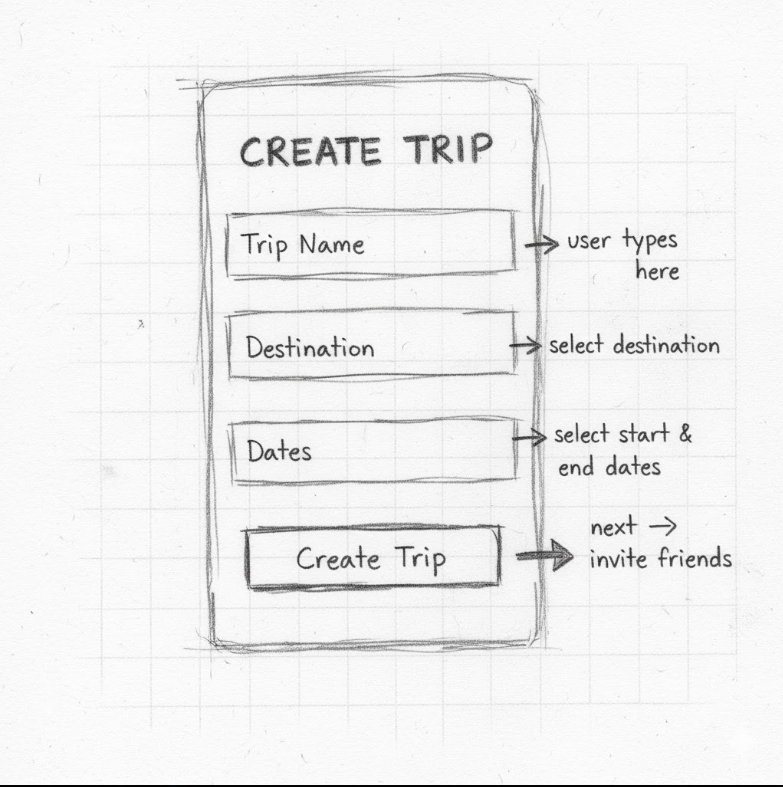 CREATE TRIP
Trip Name
user types
here
Destination
select destination
Dates
select start &
end dates
next →
Create Trip
invite friends